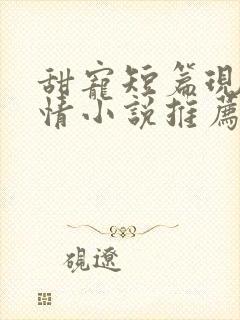 甜寵短篇現
情小說推薦
硯遼